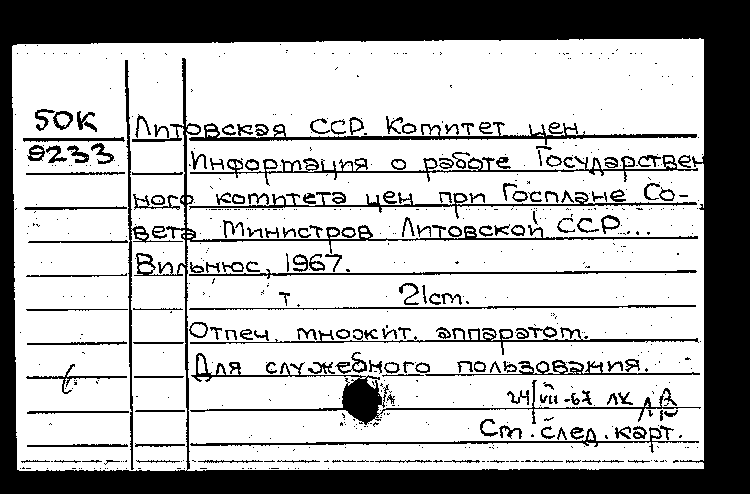 50К Литовская ССР. Комитет цен.
9233 Информация о работе Государствен
ного комитета цен при Госплане Со-
вета Министров Литовской ССР...
Вильнюс, 1967.
т. 21см.
Отпеч. множит. аппаратом.
Для служебного пользования.
24/VII-67 ЛК ЛВ
См. след. карт.